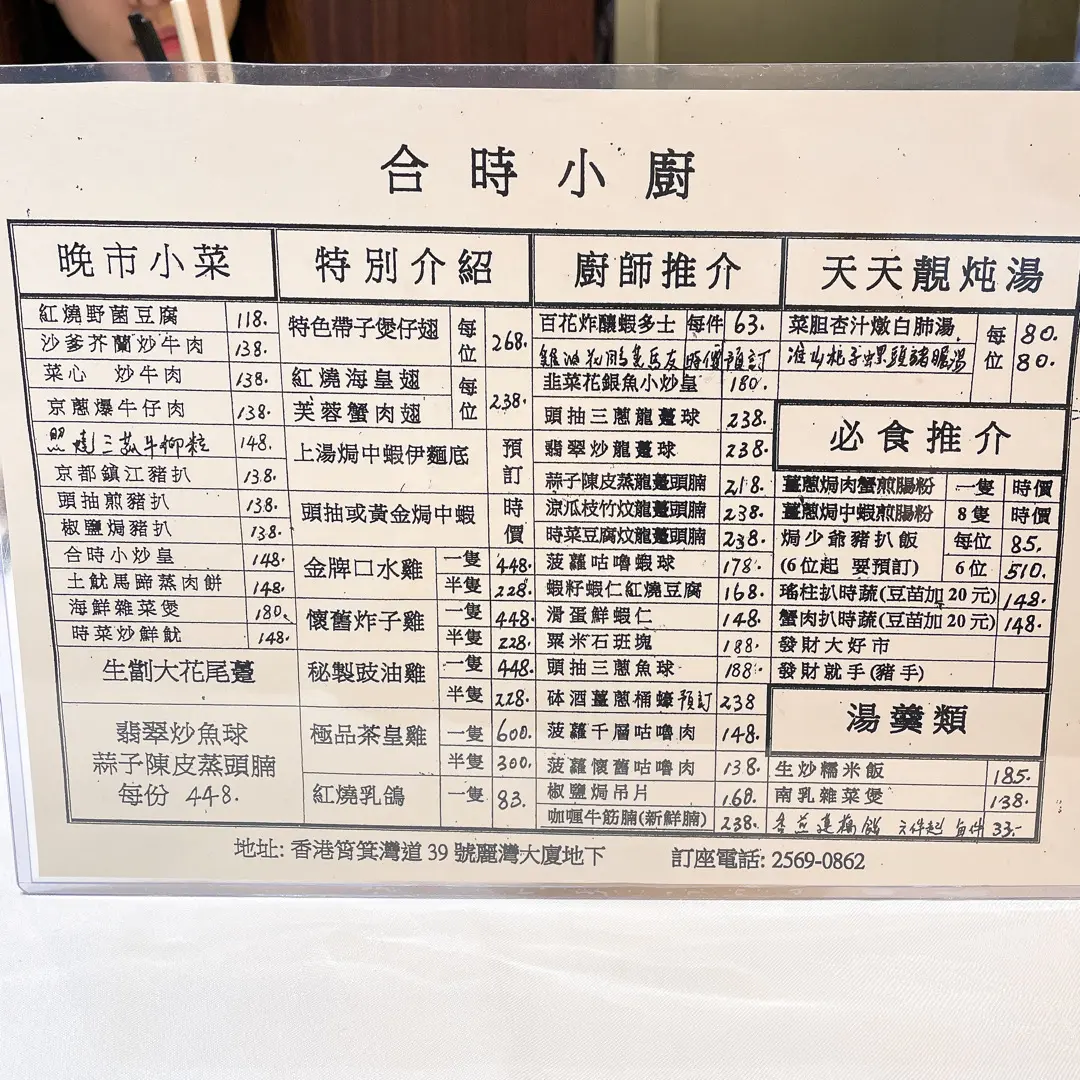 合時小廚
晚市小菜
紅燒野菌豆腐 118.
沙爹芥蘭炒牛肉 138.
菜心 炒牛肉 138.
京蔥爆牛仔肉 138.
燒三菰牛柳粒 148.
京都鎮江豬扒 138.
頭抽煎豬扒 138.
椒鹽焗豬扒 138.
合時小炒皇 148.
土魷馬蹄蒸肉餅 148.
海鮮雜菜煲 180.
時菜炒鮮魷 148.
生劏大花尾躉
翡翠炒魚球
蒜子陳皮蒸頭腩
每份 448.
特別介紹
特色帶子煲仔翅 每位 268.
紅燒海皇翅 每位 238.
芙蓉蟹肉翅
上湯焗中蝦伊麵底 預訂
頭抽或黃金焗中蝦 時價
金牌口水雞 一隻 448.
半隻 228.
懷舊炸子雞 一隻 448.
半隻 228.
秘製豉油雞 一隻 448.
半隻 228.
極品茶皇雞 一隻 600.
半隻 300.
紅燒乳鴿 一隻 83.
廚師推介
百花炸釀蝦多士 每件 63.
時價 預訂
韭菜花銀魚小炒皇 180.
頭抽三蔥龍躉球 238.
翡翠炒龍躉球 238.
蒜子陳皮蒸龍躉頭腩 218.
涼瓜枝竹炆龍躉頭腩 238.
時菜豆腐炆龍躉頭腩 238.
菠蘿咕嚕蝦球 178.
蝦籽蝦仁紅燒豆腐 168.
滑蛋鮮蝦仁 148.
粟米石班塊 188.
頭抽三蔥魚球 188.
砵酒薑蔥桶蠔 預訂 238
菠蘿千層咕嚕肉 148.
菠蘿懷舊咕嚕肉 138.
椒鹽焗吊片 168.
咖喱牛筋腩(新鮮腩) 238.
天天靚炖湯
菜胆杏汁燉白肺湯 每位 80.
淮山杞子螺頭豬腱湯 80.
必食推介
薑蔥焗肉蟹煎腸粉 一隻 時價
薑蔥焗中蝦煎腸粉 8隻 時價
焗少爺豬扒飯 每位 85.
(6位起 要預訂) 6位 510.
瑤柱扒時蔬(豆苗加20元) 148.
蟹肉扒時蔬(豆苗加20元) 148.
發財大好市
發財就手(豬手)
湯羹類
生炒糯米飯 185.
南乳雜菜煲 138.
件起 每件 33.-
地址: 香港筲箕灣道 39 號麗灣大廈地下 訂座電話: 2569-0862